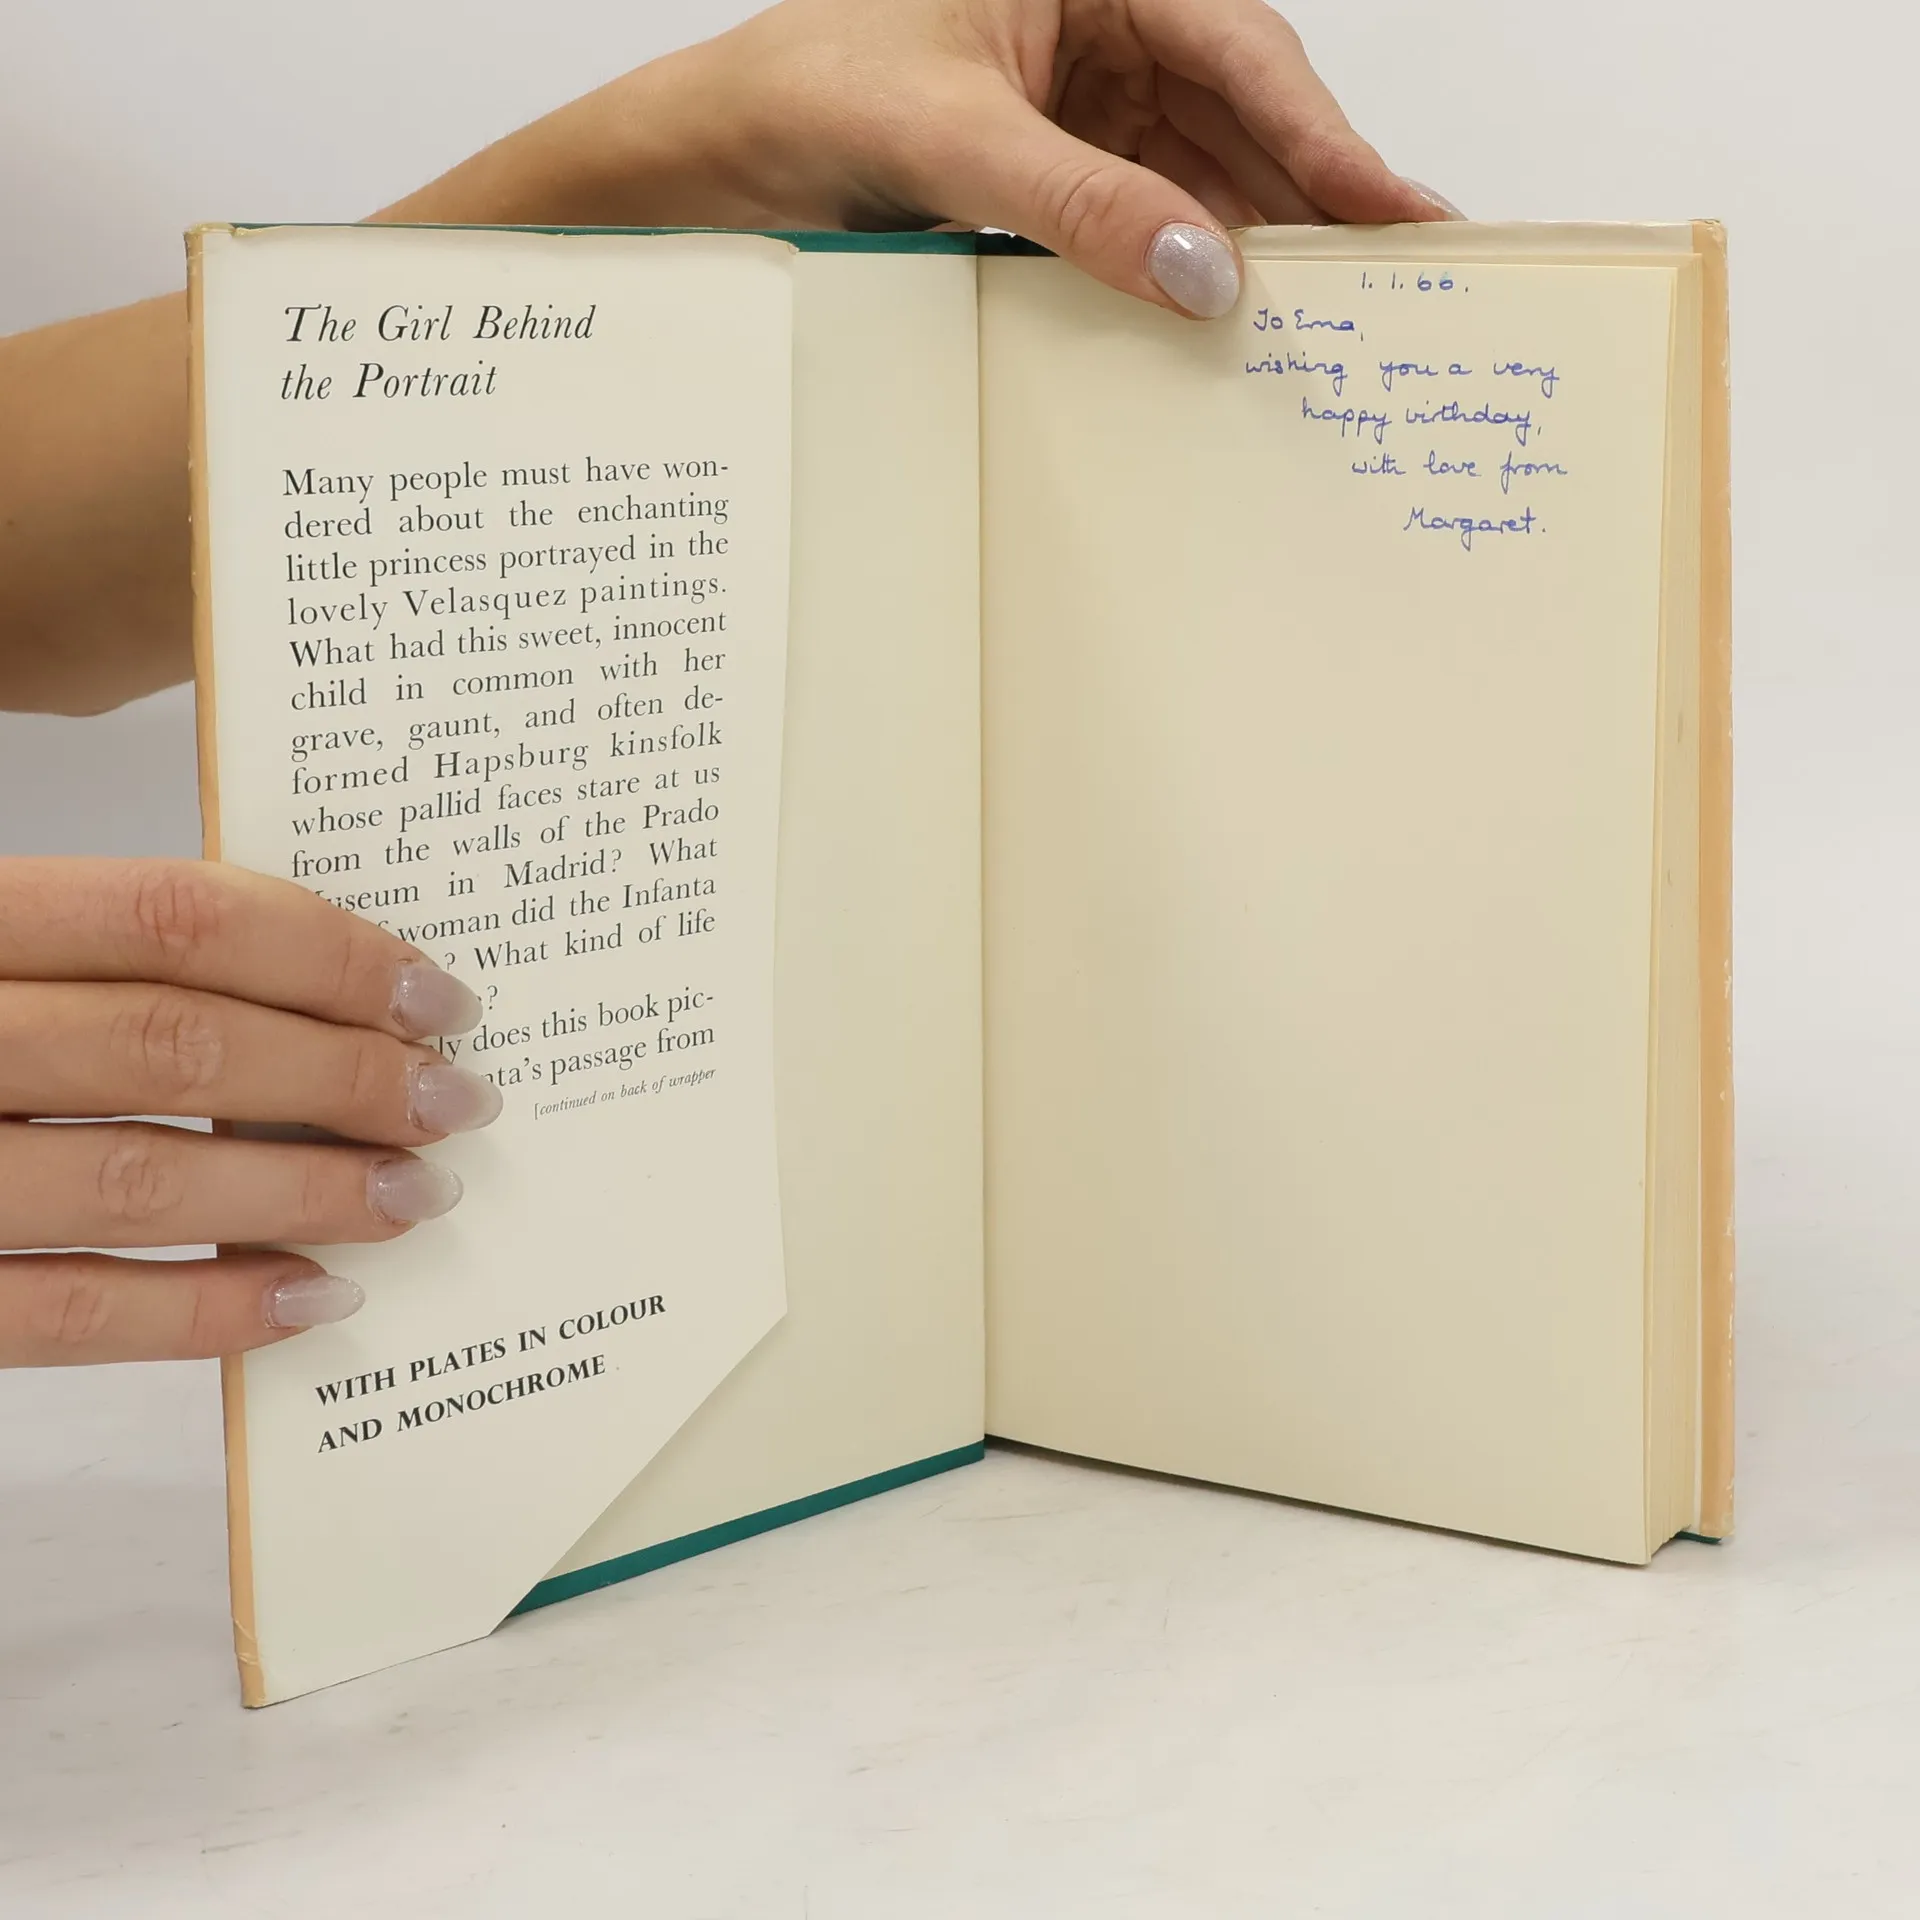 The Girl Behind
the Portrait
Many people must have won-
dered about the enchanting
little princess portrayed in the
lovely Velasquez paintings.
What had this sweet, innocent
child in common with her
grave, gaunt, and often de-
formed Hapsburg kinsfolk
whose pallid faces stare at us
from the walls of the Prado
useum in Madrid? What
woman did the Infanta
? What kind of life
?
ly does this book pic-
nta's passage from
[continued on back of wrapper
WITH PLATES IN COLOUR
AND MONOCHROME
1. 1. 66.
To Erna,
wishing you a very
happy birthday,
with love from
Margaret.